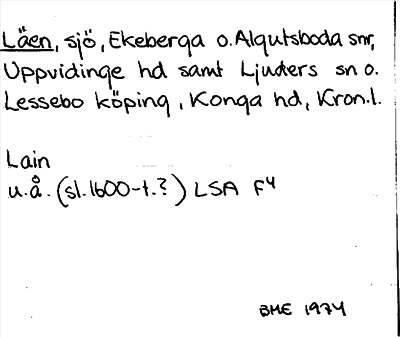 Läen, sjö, Ekeberga o. Algutsboda snr,
Uppvidinge hd samt Ljuders sn o.
Lessebo köping, Konga hd, Kron.l.
Lain
u.å. (sl. 1600-t.?) LSA F4
BME 1974